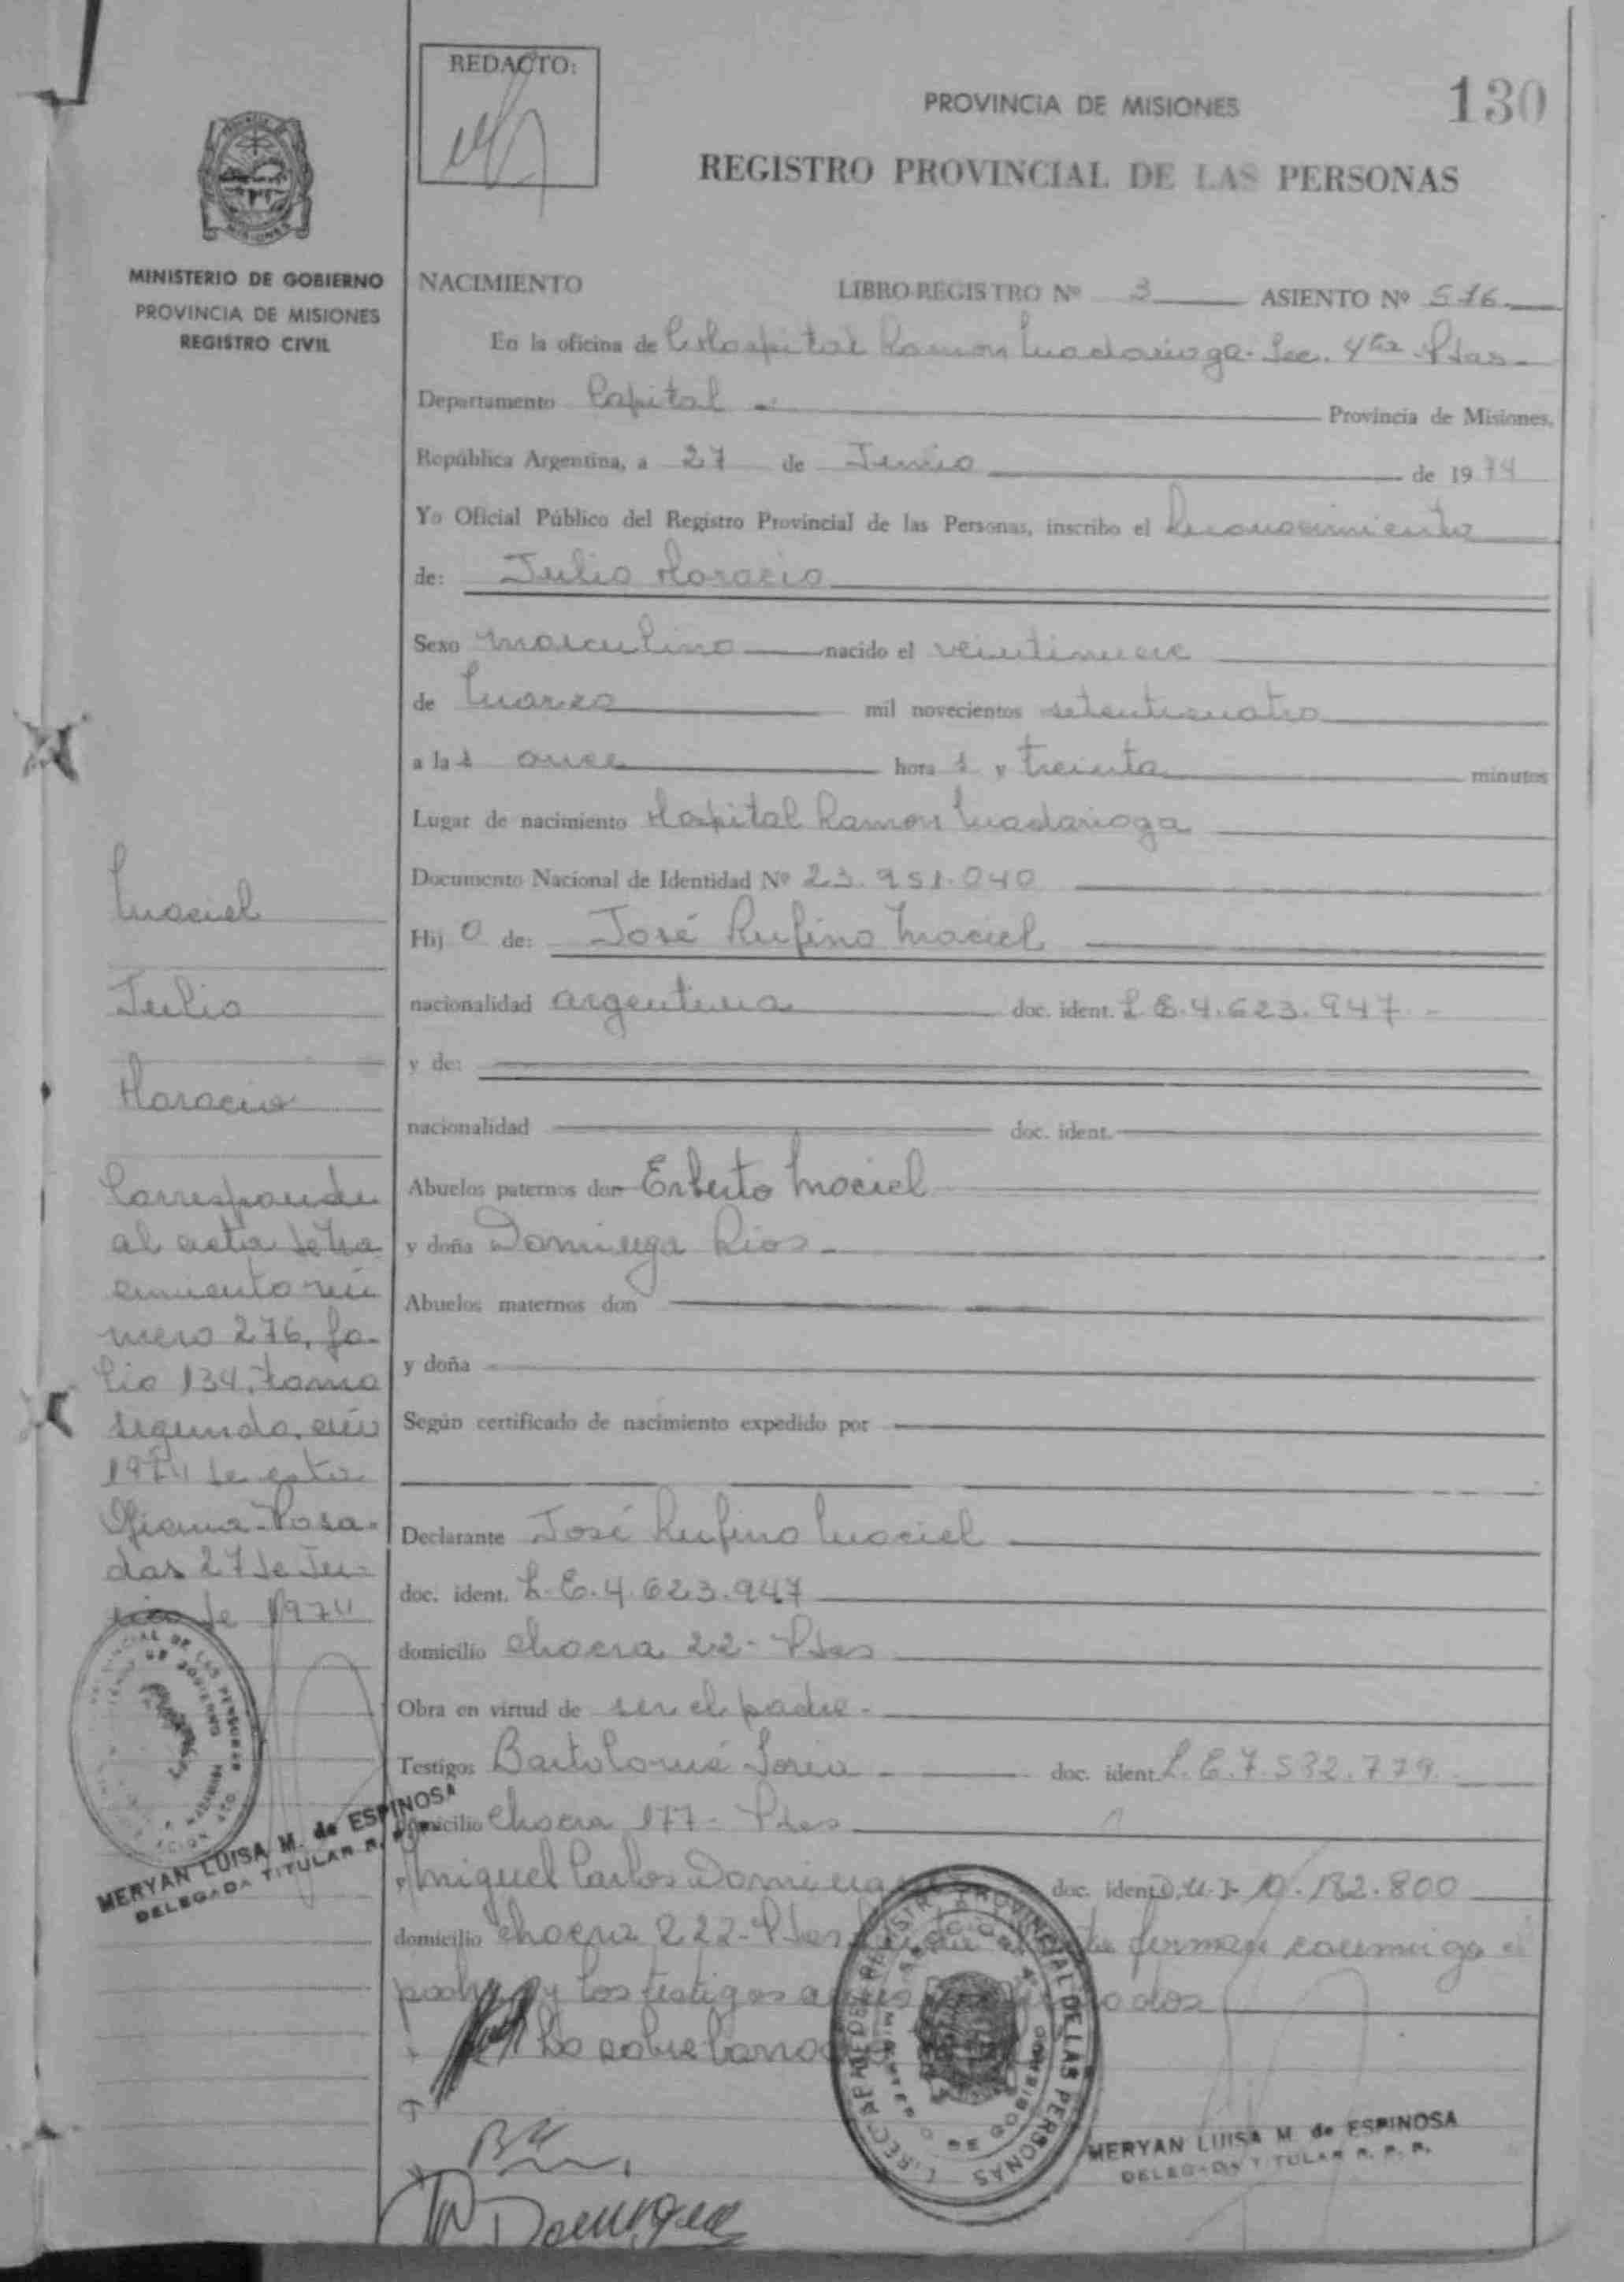 REDACTO:
PROVINCIA DE MISIONES
130
REGISTRO PROVINCIAL DE LAS PERSONAS
MINISTERIO DE GOBIERNO
PROVINCIA DE MISIONES
REGISTRO CIVIL
NACIMIENTO LIBRO REGISTRO Nº 3 ASIENTO Nº 576
En la oficina de Hospital Ramon Madariaga. Sec. 4ta Pdas
Departamento Capital Provincia de Misiones,
República Argentina, a 27 de Junio de 1974
Yo Oficial Público del Registro Provincial de las Personas, inscribo el Reconocimiento
de: Julio Horacio
Sexo masculino nacido el veintinueve
de Marzo mil novecientos setenticuatro
a las once horas y treinta minutos
Lugar de nacimiento Hospital Ramon Madariaga
Documento Nacional de Identidad Nº 23.951.040
Hijo de: José Rufino Maciel
nacionalidad argentina doc. ident. L.E. 4.623.947
y de:
nacionalidad doc. ident.
Abuelos paternos don Erberto Maciel
y doña Dominga Rios
Abuelos maternos don
y doña
Según certificado de nacimiento expedido por
Declarante José Rufino Maciel
doc. ident. L.E. 4.623.947
domicilio Chacra 22 - Pdas
Obra en virtud de ser el padre
Testigos Bartolomé Soria doc. ident. L.E. 7.532.779
domicilio Chacra 177 - Pdas
y Miguel Carlos doc. ident. D.N.I. 10.182.800
domicilio Chacra 222 - Pdas firman conmigo el
padre y los testigos
Lo sobreborrado
Maciel
Julio
Horacio
Corresponde
al acta de na
cimiento nú
mero 276, fo-
lio 134, tomo
segundo, año
1974 de esta
Oficina - Posa-
das 27 de Ju-
nio de 1974
MERYAN LUISA M. de ESPINOSA
DELEGADA TITULAR R. P. P.
MERYAN LUISA M. de ESPINOSA
DELEGADA TITULAR R. P. P.